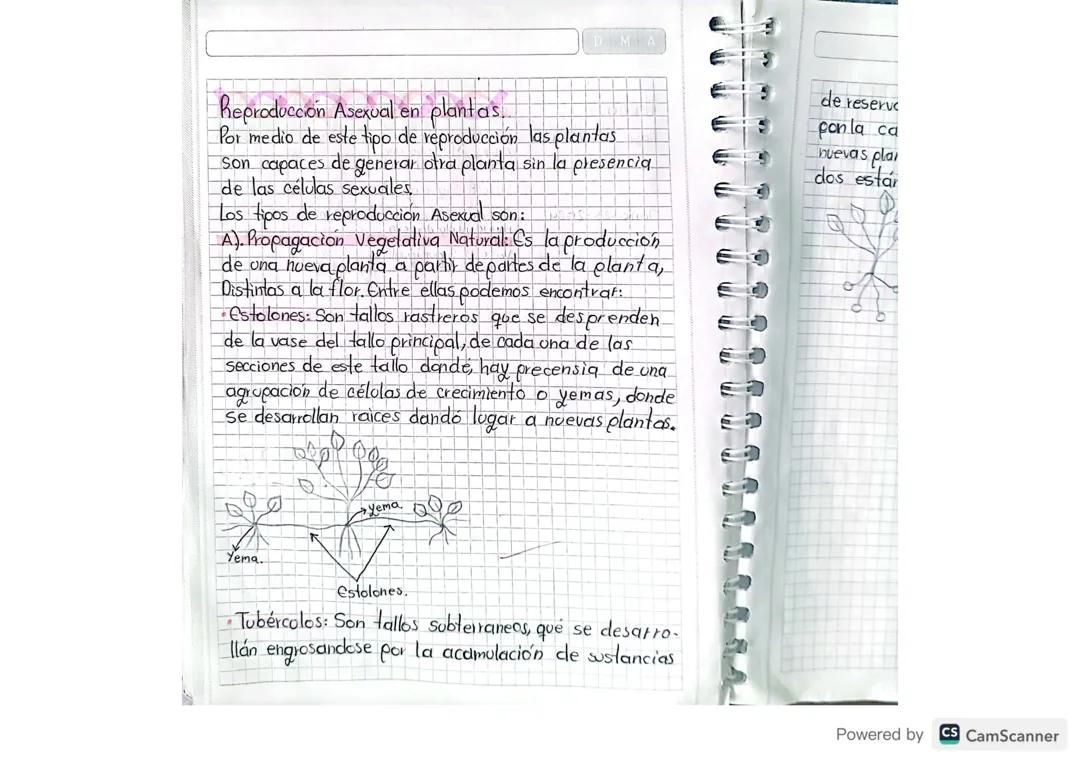 D M A
Reproducción Asexual en plantas.
Por medio de este tipo de reproducción las plantas
son capaces de generar otra planta sin la presencia
de las células sexuales.
Los tipos de reproducción Asexual son:
A). Propagación Vegetativa Natural: Es la producción
de una nueva planta a partir de partes de la planta,
Distintas a la flor. Entre ellas podemos encontrar:
• Estolones: Son tallos rastreros que se desprenden
de la vase del tallo principal, de cada una de las
secciones de este tallo donde, hay precensia de una
agrupación de células de crecimiento o yemas, donde
se desarrollan raices dando lugar a nuevas plantas.
Yema
Yema.
Estolones.
• Tubércolos: Son tallos subterraneos, que se desarro-
llán engrosandose por la acamulación de sustancias
de reserva
pon la ca
nuevas plan
dos están
Powered by CS CamScanner